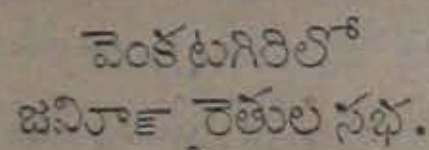 వెంకటగిరిలో
జమీ౯ రైతుల సభ.